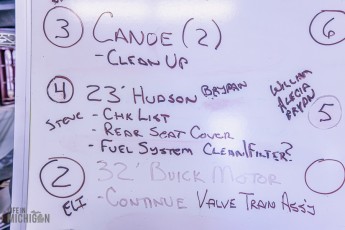 3 CANOE (2)
- CLEAN UP
6
4 23' HUDSON BRYAN
STEVE - CHK LIST
- REAR SEAT COVER
- FUEL SYSTEM CLEAN/FILTER?
WILLIAM
ALECIA
BRYAN
5
2 32' BUICK MOTOR
ELI - CONTINUE VALVE TRAIN ASS'Y
LIFE IN
MICHIGAN